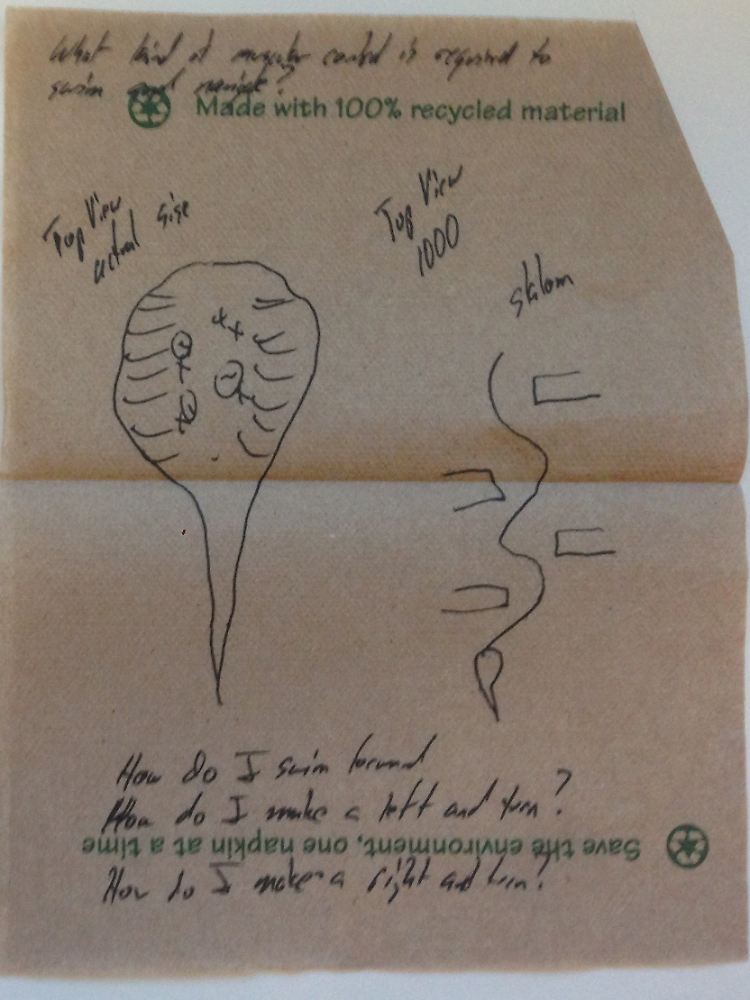 What kind of muscular control is required to
swim and navigate?
Made with 100% recycled material
Top View
actual size
Top View
1000
slalom
How do I swim forward
How do I make a left and turn?
Save the environment, one napkin at a time
How do I make a right and turn?